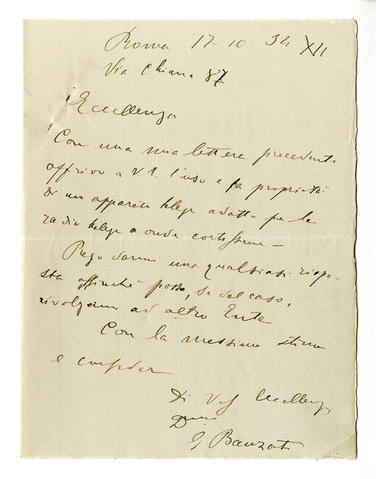 Roma 17-10-34 XII
Via Chiana 87
Eccellenza
Con una mia lettera precedente
offrivo a V.E. l'uso e la proprietà
di un apparecchio adatto per le
radio a onde cortissime –
Prego darmi una qualsiasi rispo-
sta affinché possa, se del caso,
rivolgermi ad altro Ente
Con la massima stima
e
Di V.
G Banzati